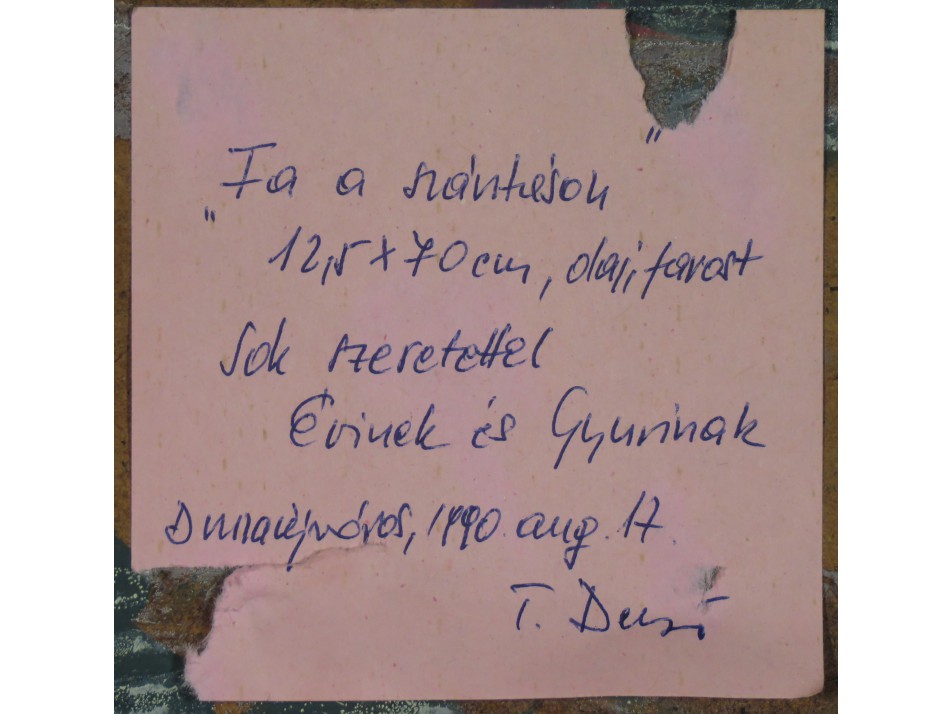 „Fa a szántáson”
12,5 x 70 cm, olaj, farost
Sok szeretettel
Évinek és Gyurinak
Dunaújváros, 1990. aug. 17.
T.